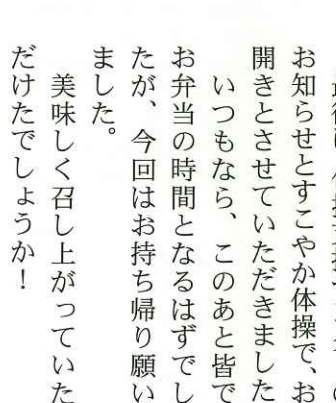 お知らせとすこやか体操で、お
開きとさせていただきました
いつもなら、このあと皆で
お弁当の時間となるはずでし
たが、今回はお持ち帰り願い
ました。
美味しく召し上がっていた
だけたでしょうか！